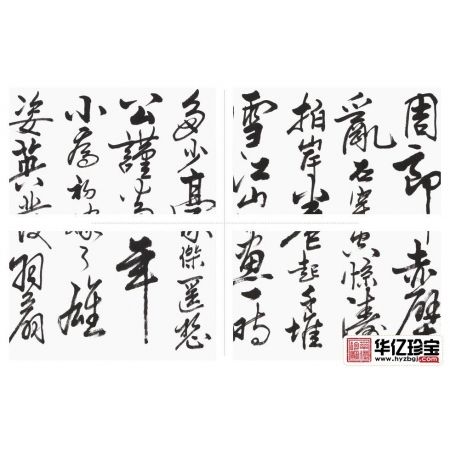 周郎赤壁
亂石穿空驚濤
拍岸卷起千堆
雪江山如畫一時
多少豪傑遥想
公謹當年
小喬初嫁了雄
姿英發羽扇
华亿珍宝
www.hyzbgj.com